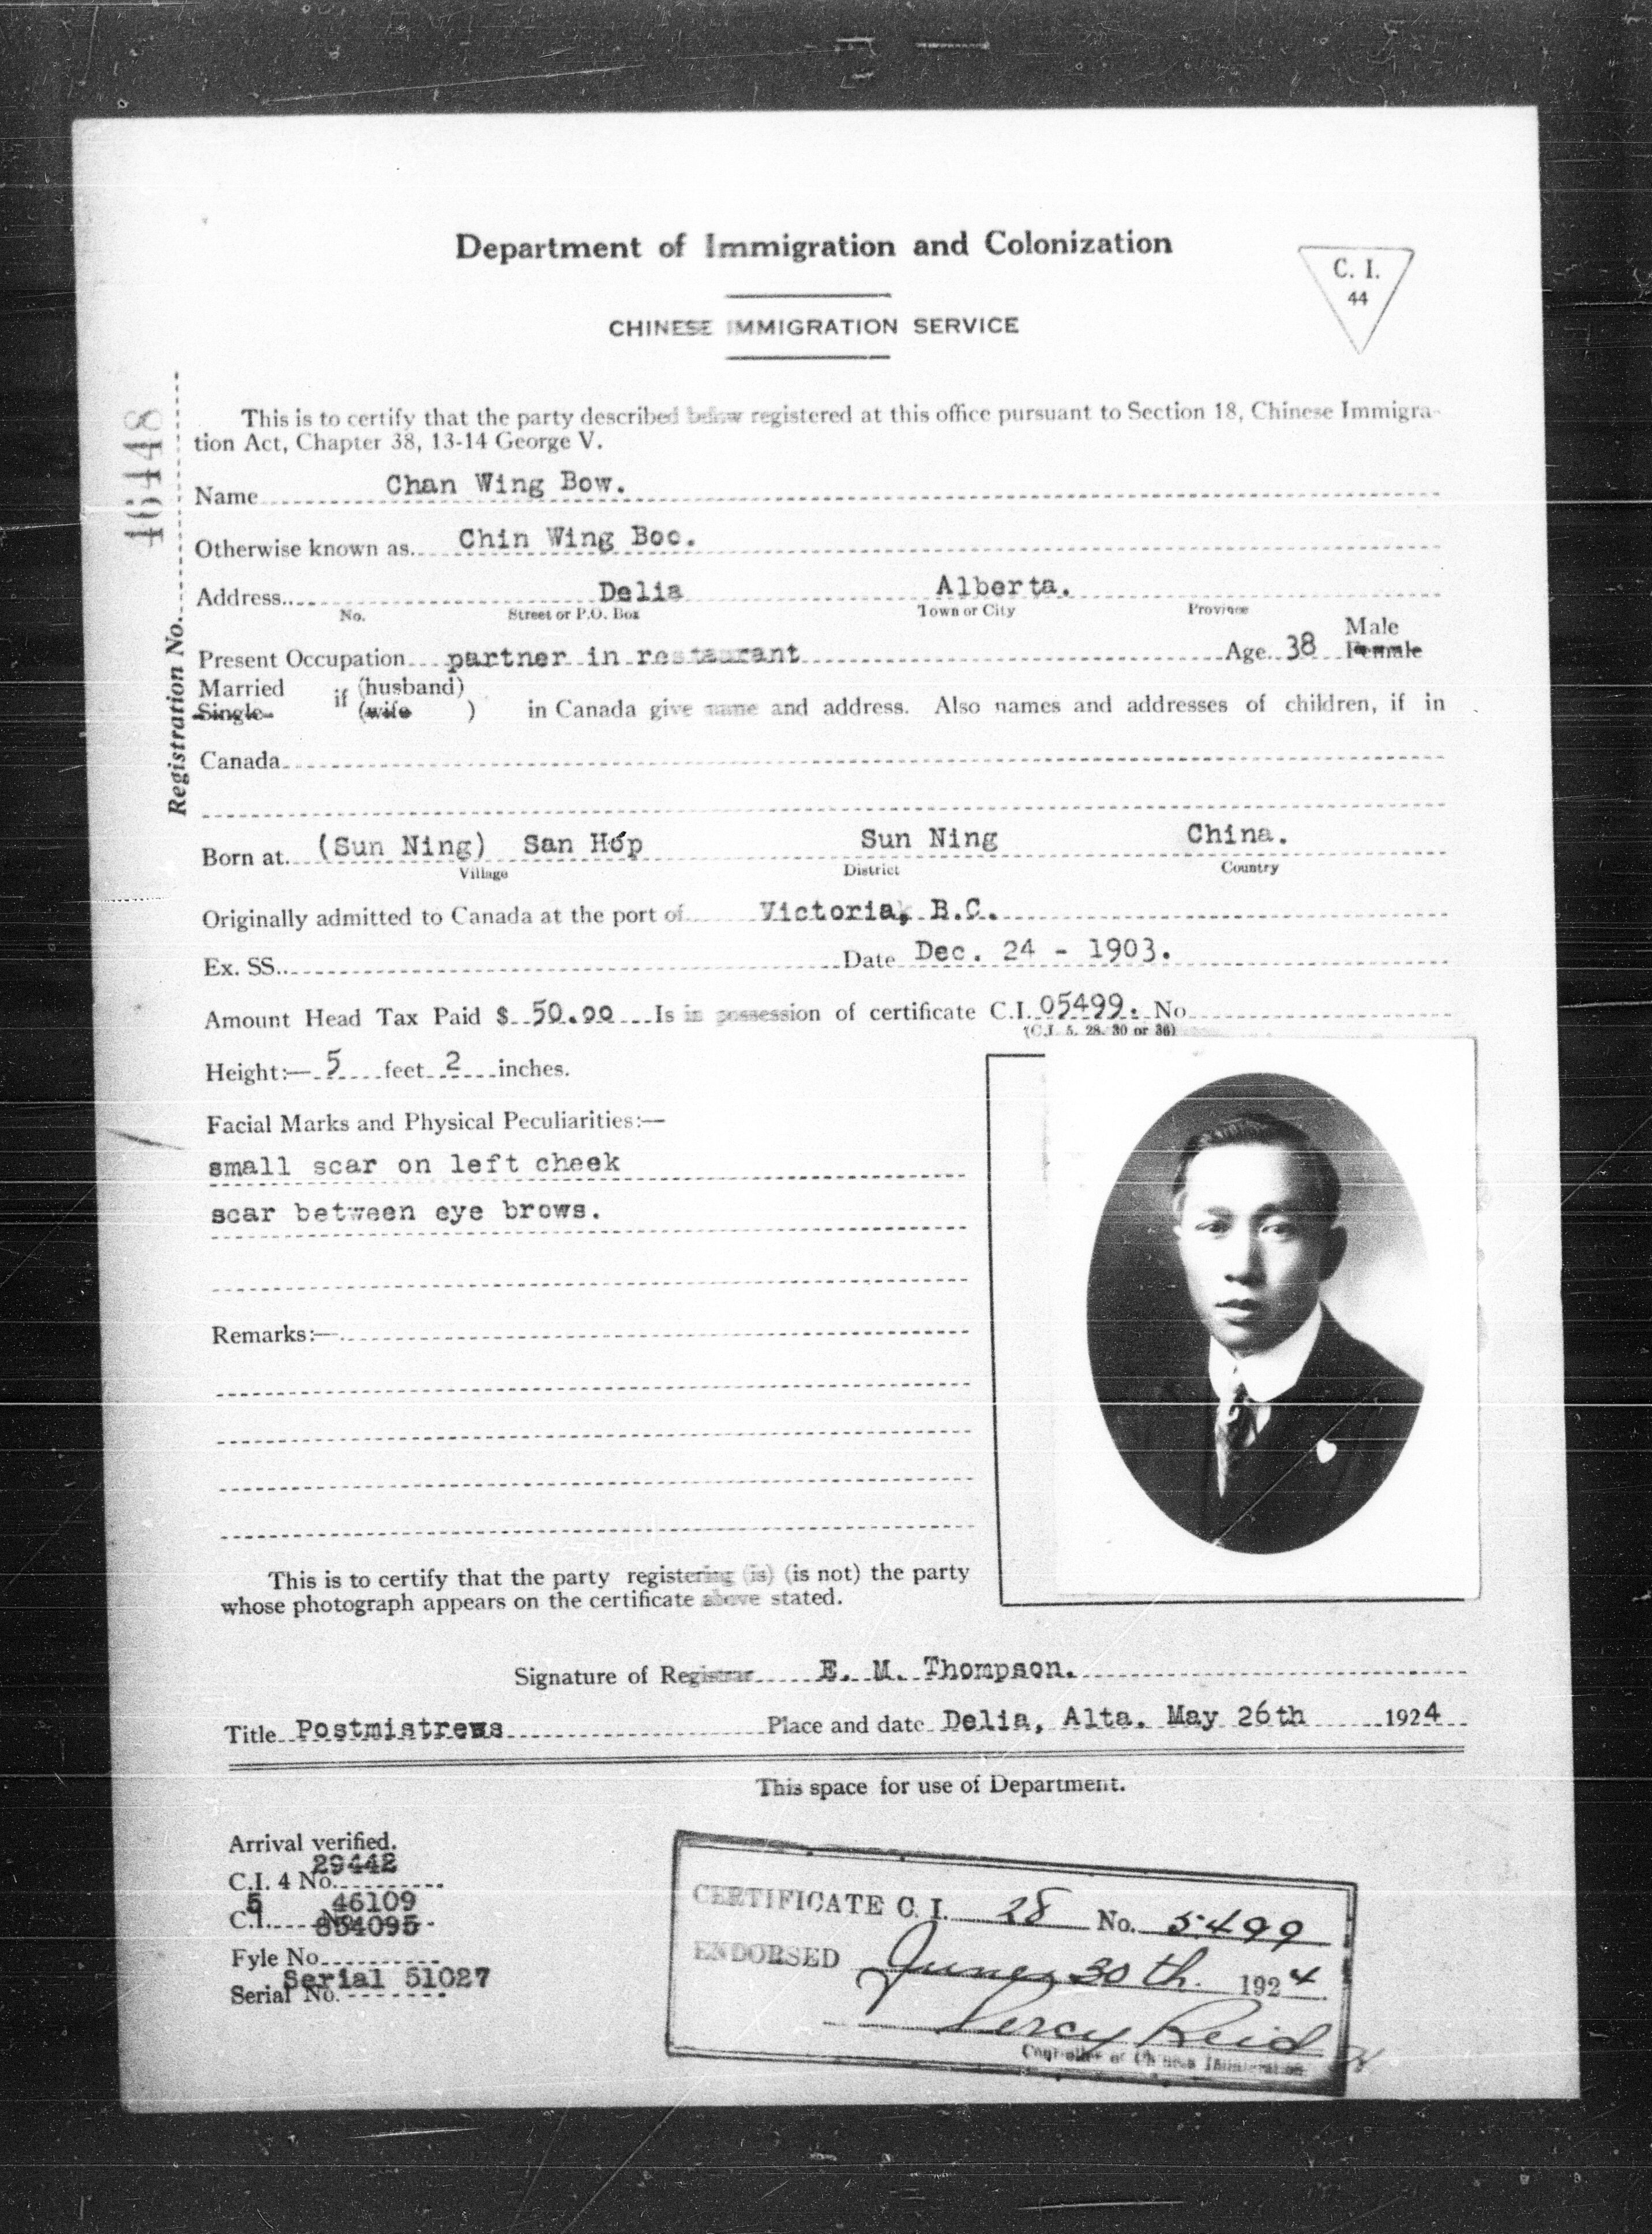 Department of Immigration and Colonization
C. I.
44
CHINESE IMMIGRATION SERVICE
Registration No. 46448
This is to certify that the party described below registered at this office pursuant to Section 18, Chinese Immigra-
tion Act, Chapter 38, 13-14 George V.
Name Chan Wing Bow.
Otherwise known as Chin Wing Boo.
Address Delia Alberta.
No. Street or P.O. Box Town or City Province
Male
Present Occupation partner in restaurant Age 38 Female
Married if (husband)
Single (wife ) in Canada give name and address. Also names and addresses of children, if in
Canada
Born at (Sun Ning) San Hop Sun Ning China.
Village District Country
Originally admitted to Canada at the port of Victoria, B.C.
Ex. SS. Date Dec. 24 - 1903.
Amount Head Tax Paid $ 50.00 Is in possession of certificate C.I. 05499. No
(C.I. 5, 28, 30 or 36)
Height:— 5 feet 2 inches.
Facial Marks and Physical Peculiarities:—
small scar on left cheek
scar between eye brows.
Remarks:—
This is to certify that the party registering (is) (is not) the party
whose photograph appears on the certificate above stated.
Signature of Registrar E. M. Thompson.
Title Postmistress Place and date Delia, Alta. May 26th 1924
This space for use of Department.
Arrival verified.
29442
C.I. 4 No.
5 46109
C.I. No.
Fyle No.
Serial 51027
Serial No.
CERTIFICATE C. I. 28 No. 5499
ENDORSED June 30th. 1924
Percy Reid
Controller of Chinese Immigration